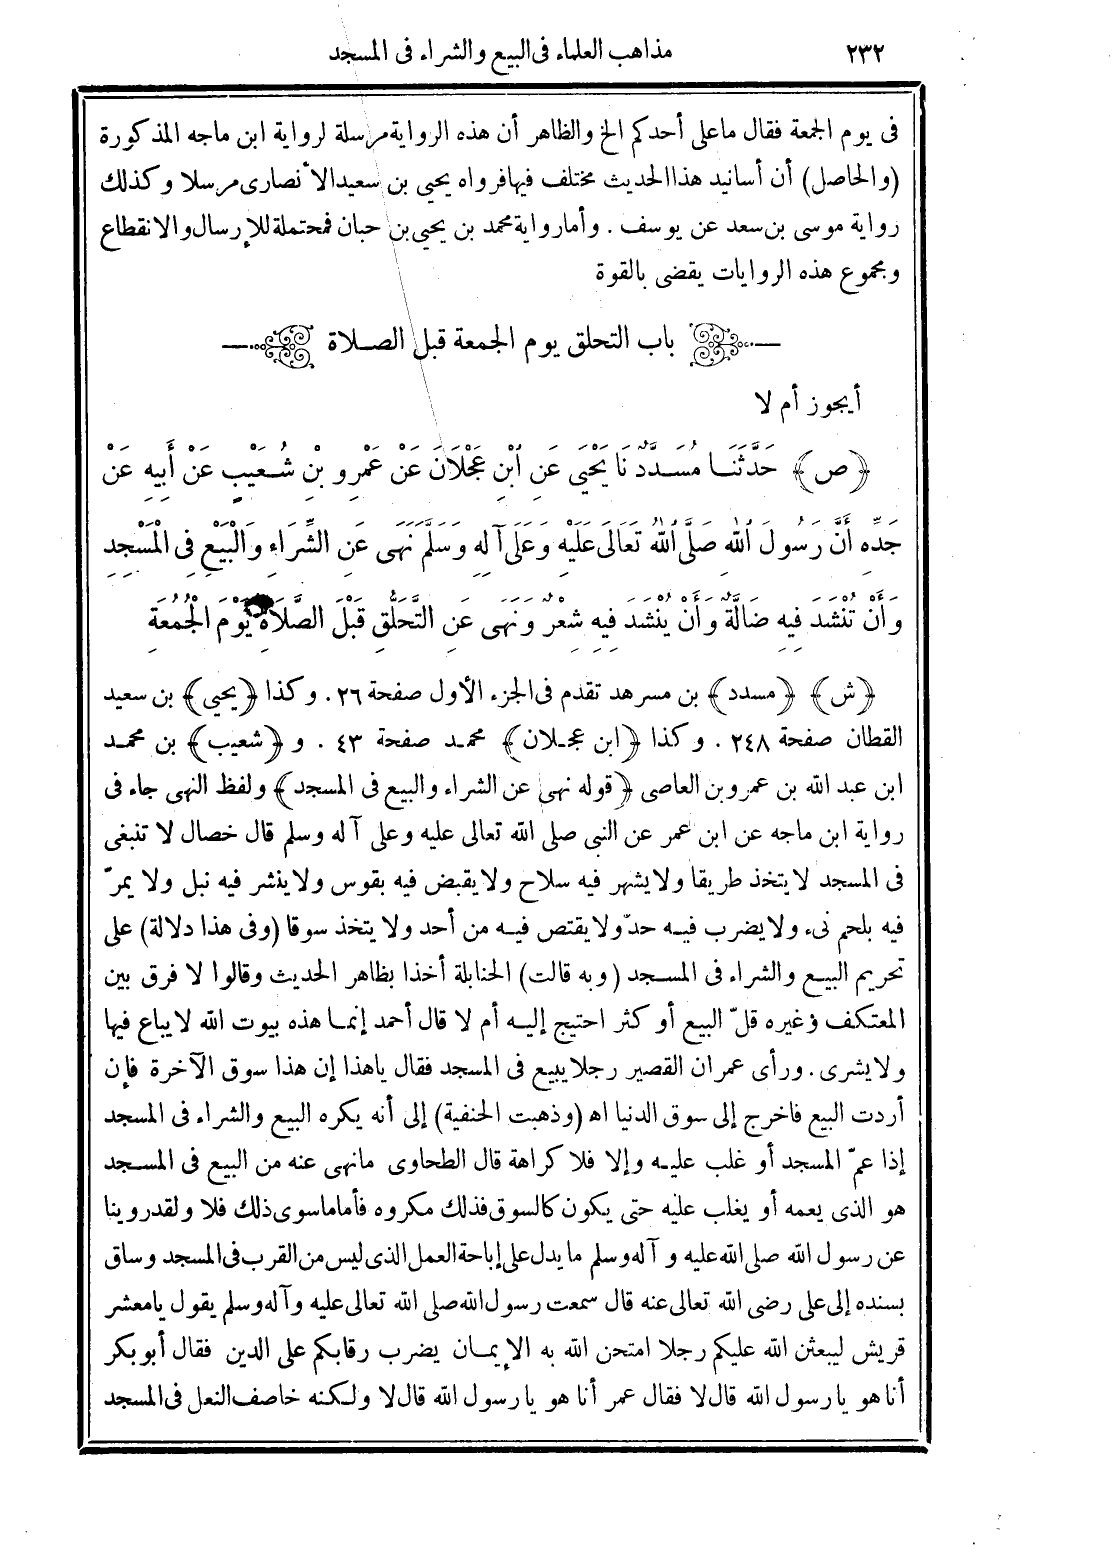 ٢٣٢ مذاهب العلماء فى البيع والشراء فى المسجد
فى يوم الجمعة فقال ماعلى أحدكم الخ والظاهر أن هذه الرواية مرسلة لرواية ابن ماجه المذكورة
(والحاصل) أن أسانيد هذا الحديث مختلف فيها فرواه يحيى بن سعيد الأنصارى مرسلا وكذلك
رواية موسى بن سعد عن يوسف . وأما رواية محمد بن يحيى بن حبان فمحتملة للإرسال والانقطاع
ومجموع هذه الروايات يقضى بالقوة
باب التحلق يوم الجمعة قبل الصلاة
أيجوز أم لا
﴿ص﴾ حَدَّثَنَا مُسَدَّدٌ نَا يَحْيَى عَنِ ابْنِ عَجْلَانَ عَنْ عَمْرِو بْنِ شُعَيْبٍ عَنْ أَبِيهِ عَنْ
جَدِّهِ أَنَّ رَسُولَ اللهِ صَلَّى اللهُ تَعَالَى عَلَيْهِ وَعَلَى آلِهِ وَسَلَّمَ نَهَى عَنِ الشِّرَاءِ وَالْبَيْعِ فِى الْمَسْجِدِ
وَأَنْ تُنْشَدَ فِيهِ ضَالَّةٌ وَأَنْ يُنْشَدَ فِيهِ شِعْرٌ وَنَهَى عَنِ التَّحَلُّقِ قَبْلَ الصَّلَاةِ يَوْمَ الْجُمُعَةِ
﴿ش﴾ ﴿مسدد﴾ بن مسرهد تقدم فى الجزء الأول صفحة ٢٦ . وكذا ﴿يحيى﴾ بن سعيد
القطان صفحة ٢٤٨ . وكذا ﴿ابن عجلان﴾ محمد صفحة ٤٣ . و ﴿شعيب﴾ بن محمد
ابن عبد الله بن عمرو بن العاصى ﴿قوله نهى عن الشراء والبيع فى المسجد﴾ ولفظ النهى جاء فى
رواية ابن ماجه عن ابن عمر عن النبى صلى الله تعالى عليه وعلى آله وسلم قال خصال لا تنبغى
فى المسجد لا يتخذ طريقا ولا يشهر فيه سلاح ولا يقبض فيه بقوس ولا ينشر فيه نبل ولا يمرّ
فيه بلحم نىء ولا يضرب فيه حدّ ولا يقتص فيه من أحد ولا يتخذ سوقا (وفى هذا دلالة) على
تحريم البيع والشراء فى المسجد (وبه قالت) الحنابلة أخذا بظاهر الحديث وقالوا لا فرق بين
المعتكف وغيره قلّ البيع أو كثر احتيج إليه أم لا قال أحمد إنما هذه بيوت الله لا يباع فيها
ولا يشرى . ورأى عمران القصير رجلا يبيع فى المسجد فقال ياهذا إن هذا سوق الآخرة فإن
أردت البيع فاخرج إلى سوق الدنيا اه (وذهبت الحنفية) إلى أنه يكره البيع والشراء فى المسجد
إذا عمّ المسجد أو غلب عليه وإلا فلا كراهة قال الطحاوى مانهى عنه من البيع فى المسجد
هو الذى يعمه أو يغلب عليه حتى يكون كالسوق فذلك مكروه فأما ماسوى ذلك فلا ولقد روينا
عن رسول الله صلى الله عليه و آله وسلم ما يدل على إباحة العمل الذى ليس من القرب فى المسجد وساق
بسنده إلى على رضى الله تعالى عنه قال سمعت رسول الله صلى الله تعالى عليه وآله وسلم يقول يامعشر
قريش ليبعثن الله عليكم رجلا امتحن الله به الإيمان يضرب رقابكم على الدين فقال أبو بكر
أنا هو يارسول الله قال لا فقال عمر أنا هو يارسول الله قال لا ولكنه خاصف النعل فى المسجد